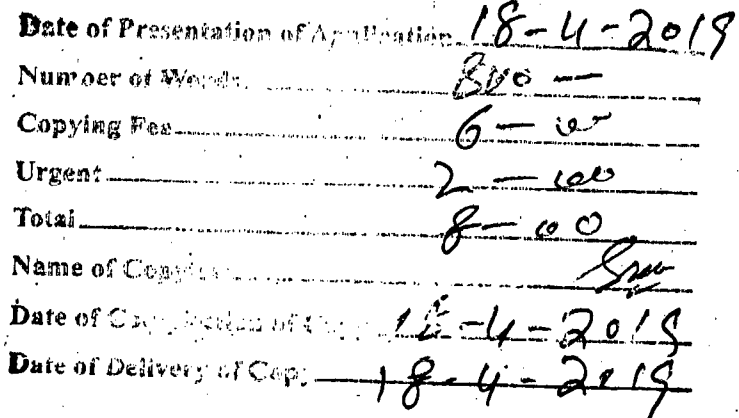 Date of Presentation of Application 18-4-2019
Number of Words 800 —
Copying Fee 6 — 00
Urgent 2 — 00
Total 8 — 00
Name of Copyist
Date of Completion of Copy 18-4-2019
Date of Delivery of Copy 18-4-2019